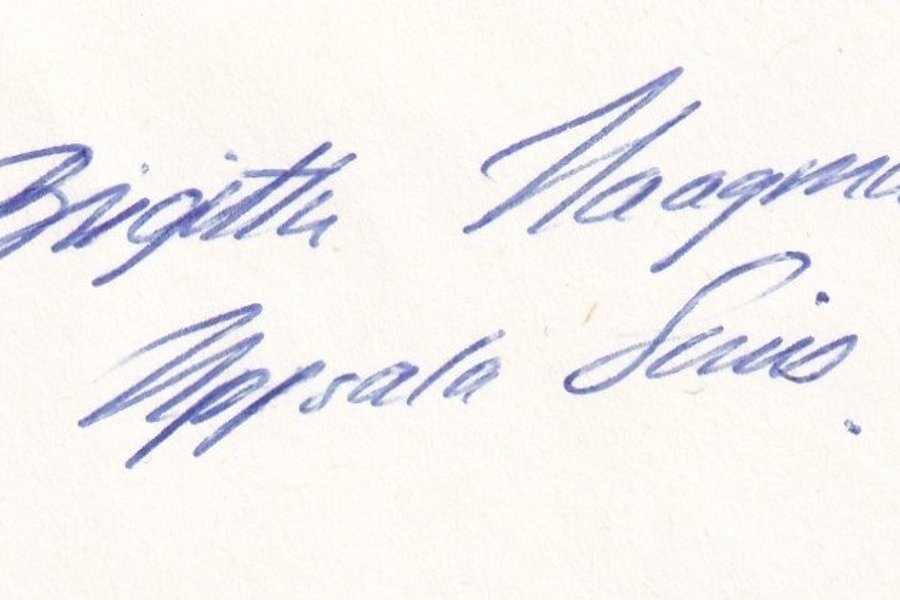 Brigitta Haagma
Uppsala Suis.